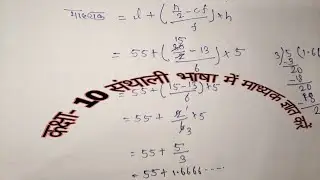 माध्यक = l + (n/2 - cf / f) × h
= 55 + (30/2 - 13 / 6) × 5
15
= 55 + (15-13 / 6) × 5
= 55 + 2/6 × 5
3
= 55 + 5/3
= 55 + 1.6666....
3)5(1.66
-3
20
-18
20
-18
2
कक्षा- 10 संथाली भाषा में माध्यक ज्ञात करें